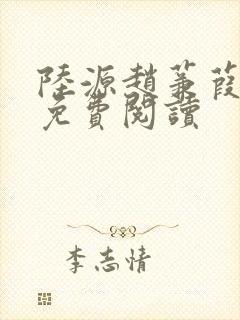 陸源趙蒹葭
免費閱讀
李志情